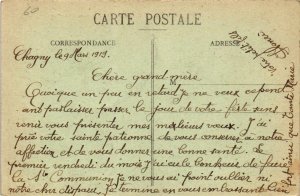 CARTE POSTALE
CORRESPONDANCE
ADRESSE
Chagny le 9 Mars 1913.
Chère grand-mère
Quoique un peu en retard je ne veux cepend
ant pas laisser passer le jour de votre fête sans
venir vous présenter mes meilleurs vœux. J'ai
prié votre sainte patronne de vous conserver à notre
affection et de vous donner une bonne santé. Le
premier vendredi du mois j'ai eu le bonheur de faire
la Ste Communion je ne vous ai point oublier ni
notre cher disparu. Je termine en vous embrassant
ainsi que tante Marie
Votre petit